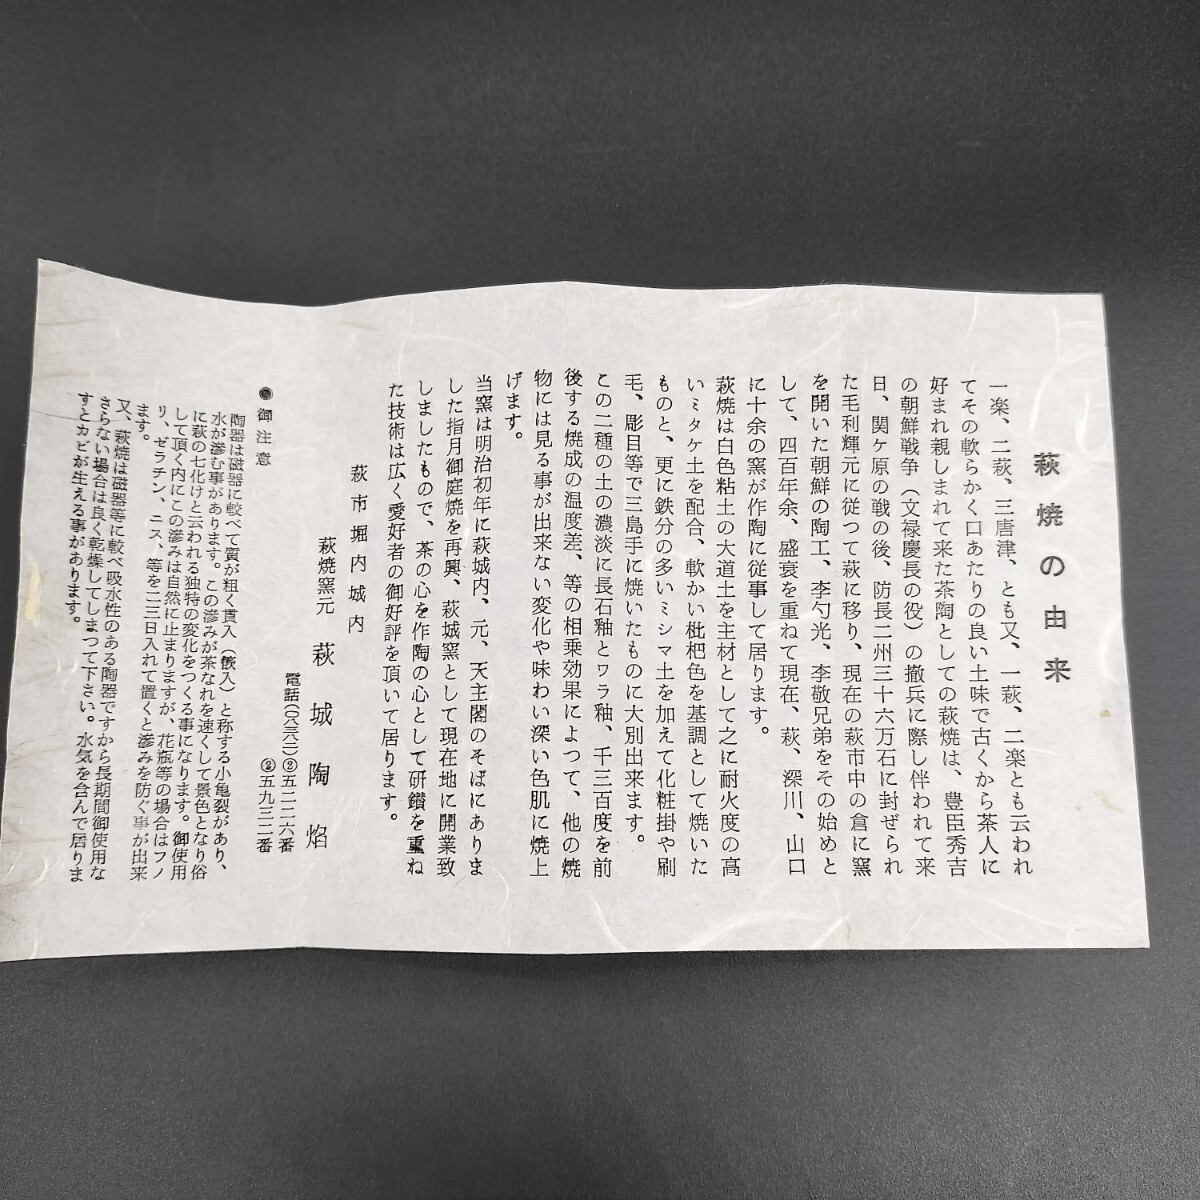 萩焼の由来
一楽、二萩、三唐津、とも又、一萩、二楽とも云われ
てその軟らかく口あたりの良い土味で古くから茶人に
好まれ親しまれて来た茶陶としての萩焼は、豊臣秀吉
の朝鮮戦争（文禄慶長の役）の撤兵に際し伴われて来
日、関ヶ原の戦の後、防長二州三十六万石に封ぜられ
た毛利輝元に従つて萩に移り、現在の萩市中の倉に窯
を開いた朝鮮の陶工、李勺光、李敬兄弟をその始めと
して、四百年余、盛衰を重ねて現在、萩、深川、山口
に十余の窯が作陶に従事して居ります。
萩焼は白色粘土の大道土を主材として之に耐火度の高
いミタケ土を配合、軟かい枇杷色を基調として焼いた
ものと、更に鉄分の多いミシマ土を加えて化粧掛や刷
毛、彫目等で三島手に焼いたものに大別出来ます。
この二種の土の濃淡に長石釉とワラ釉、千三百度を前
後する焼成の温度差、等の相乗効果によつて、他の焼
物には見る事が出来ない変化や味わい深い色肌に焼上
げます。
当窯は明治初年に萩城内、元、天主閣のそばにありま
した指月御庭焼を再興、萩城窯として現在地に開業致
しましたもので、茶の心を作陶の心として研鑽を重ね
た技術は広く愛好者の御好評を頂いて居ります。
萩市堀内城内
萩焼窯元 萩城陶焔
電話（〇八三八二）②五二二六番
②五九三二番
●御注意
陶器は磁器に較べて質が粗く貫入（飲入）と称する小亀裂があり、
水が滲む事があります。この滲みが茶なれを速くして景色となり俗
に萩の七化けと云われる独特の変化をつくる事になります。御使用
して頂く内にこの滲みは自然に止まりますが、花瓶等の場合はフノ
リ、ゼラチン、ニス、等を二三日入れて置くと滲みを防ぐ事が出来
ます。
又、萩焼は磁器等に較べ吸水性のある陶器ですから長期間御使用な
さらない場合は良く乾燥してしまつて下さい。水気を含んで居りま
すとカビが生える事があります。